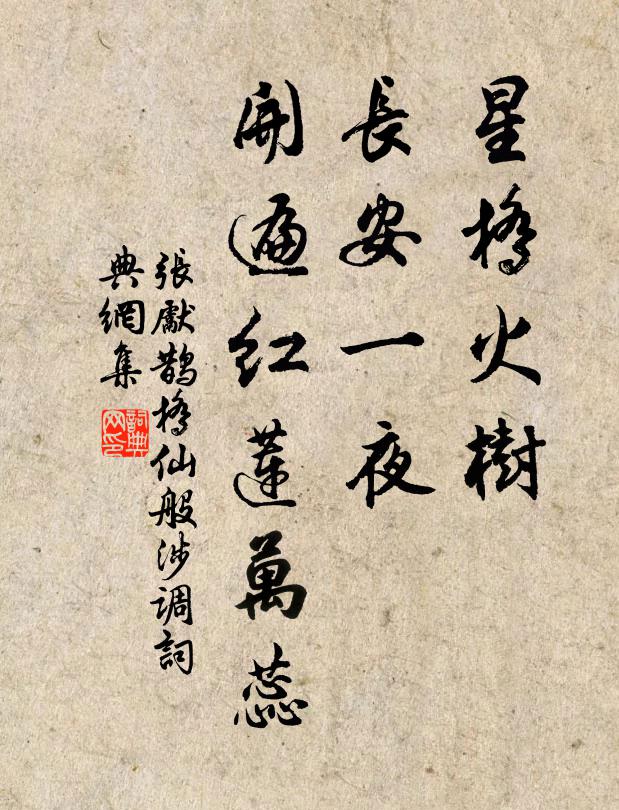 星橋火樹
長安一夜
開遍紅蓮萬蕊
張獻鵲橋仙般涉調詞
典網集
詞典网印